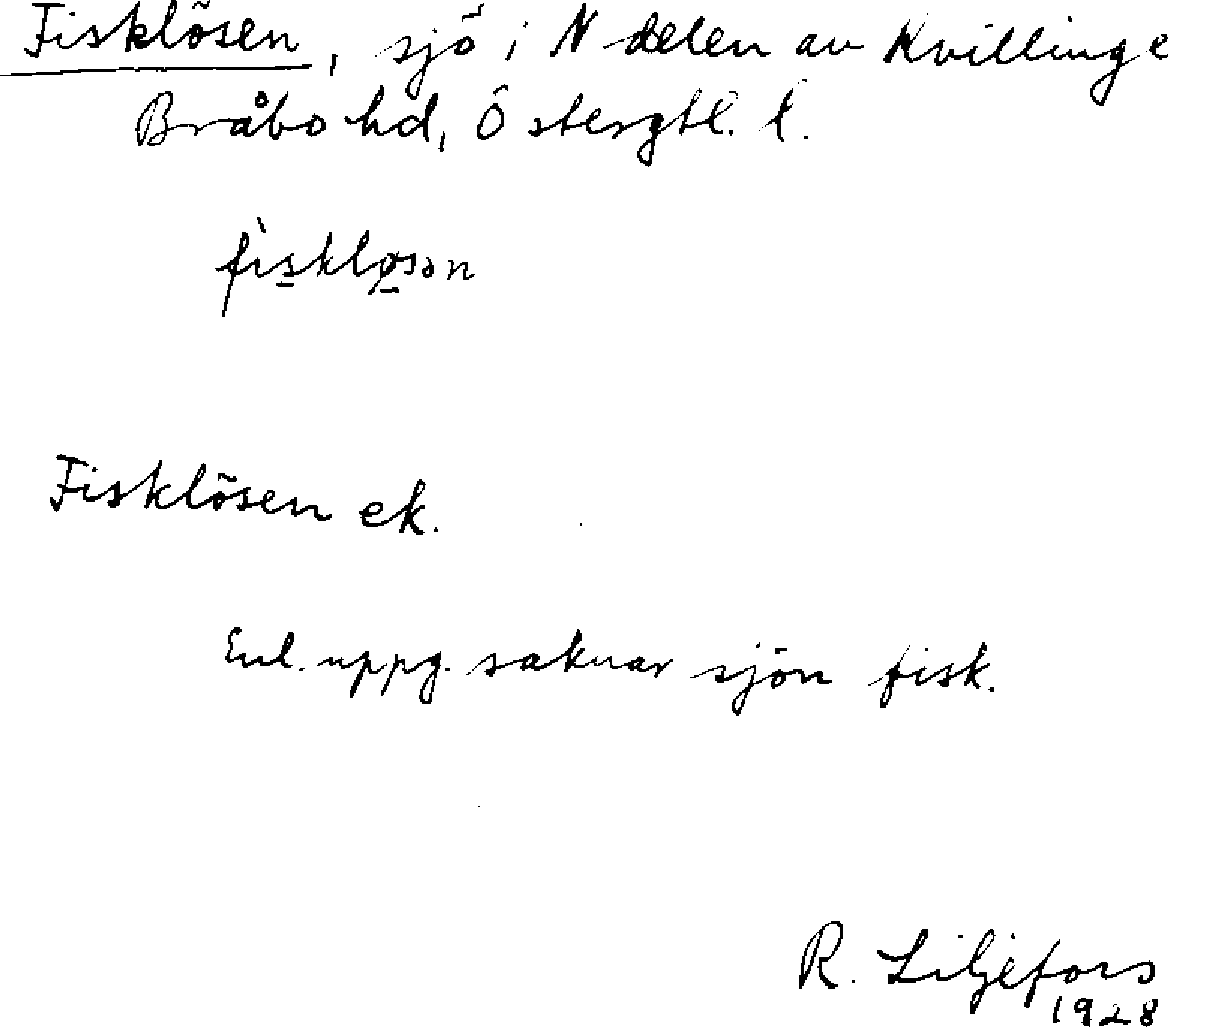 Fisklösen, sjö i N delen av Kvillinge
Bråbo hd, Östergtl. l.
fìskløsən
Fisklösen ek.
Enl. uppg. saknar sjön fisk.
R. Liljefors
1928